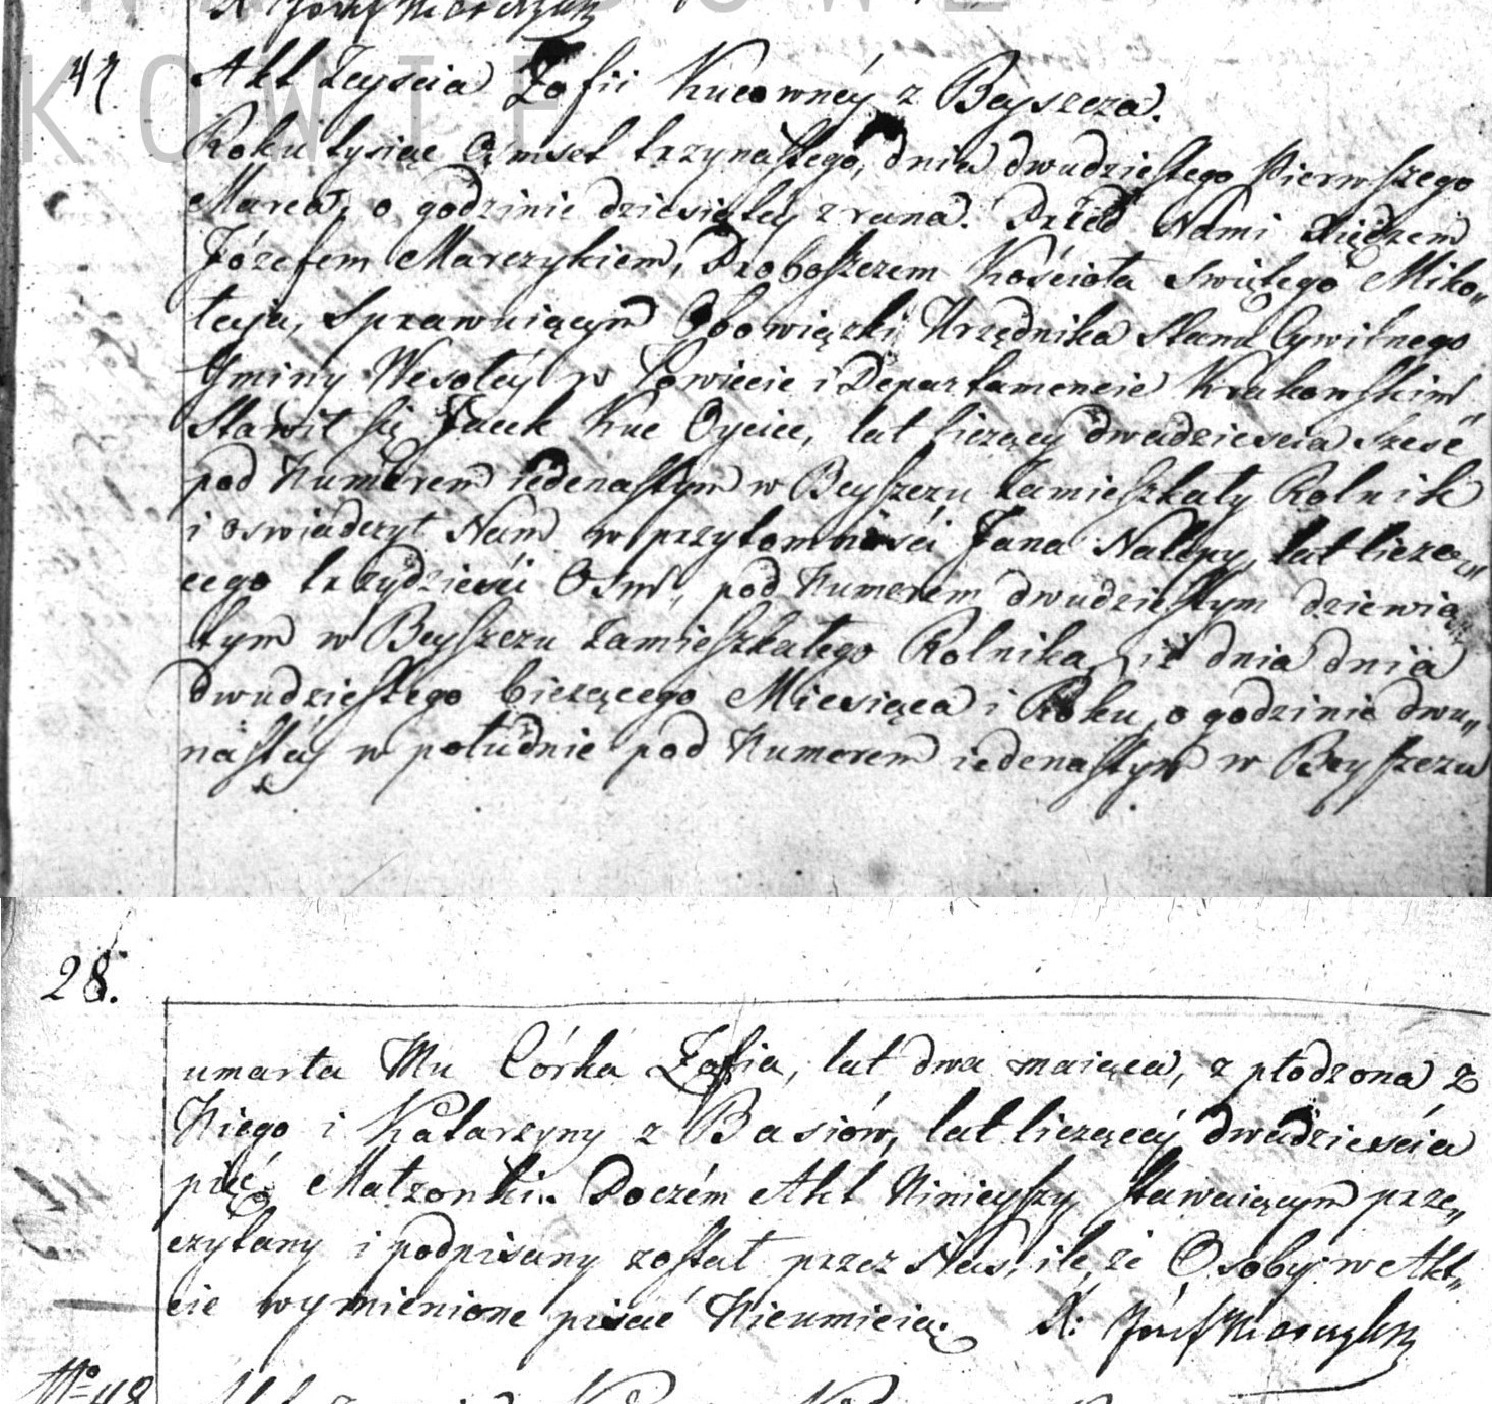 47
Akt Zeyscia Zofii Kucowney z Beyszcza.
Roku tysiąc ośmset trzynastego, dnia dwudziestego Pierwszego
Marca, o godzinie dziesiątey z rana. Przed Nami Xiędzem
Józefem Marczykiem, Proboszczem Kościoła Swiętego Miko„
łaja, Sprawuiącym Obowiązki Urzędnika Stanu Cywilnego
Gminy Wesołey w Powiecie i Departamencie Krakowskim
Stawił się Jacek Kuc Oyciec, lat liczący dwadziescia sześć
pod Numerem iedenastym w Beyszczu zamieszkały Rolnik
i oswiadczył Nam w przytomności Jana Nalepy, lat licza„
cego trzydzieści Osm, pod Numerem dwudziestym dziewią
tym w Beyszczu zamieszkałego Rolnika, iż dnia dnia
dwudziestego bieżącego Miesiąca i Roku, o godzinie dwu„
nastey w południe pod Numerem iedenastym w Beyszczu
28.
umarła Mu Córka Zofia, lat dwa maiąca, z płodzona z
Niego i Katarzyny z Basiów, lat liczącey dwadzieścia
pięć Małżonki. Poczém Akt Ninieyszy stawaiącym prze„
czytany i podpisany został przez Nas, ile że Osoby w Ak„
cie wymienione pisać Nieumieią. X: Józef Marczyk
No 48